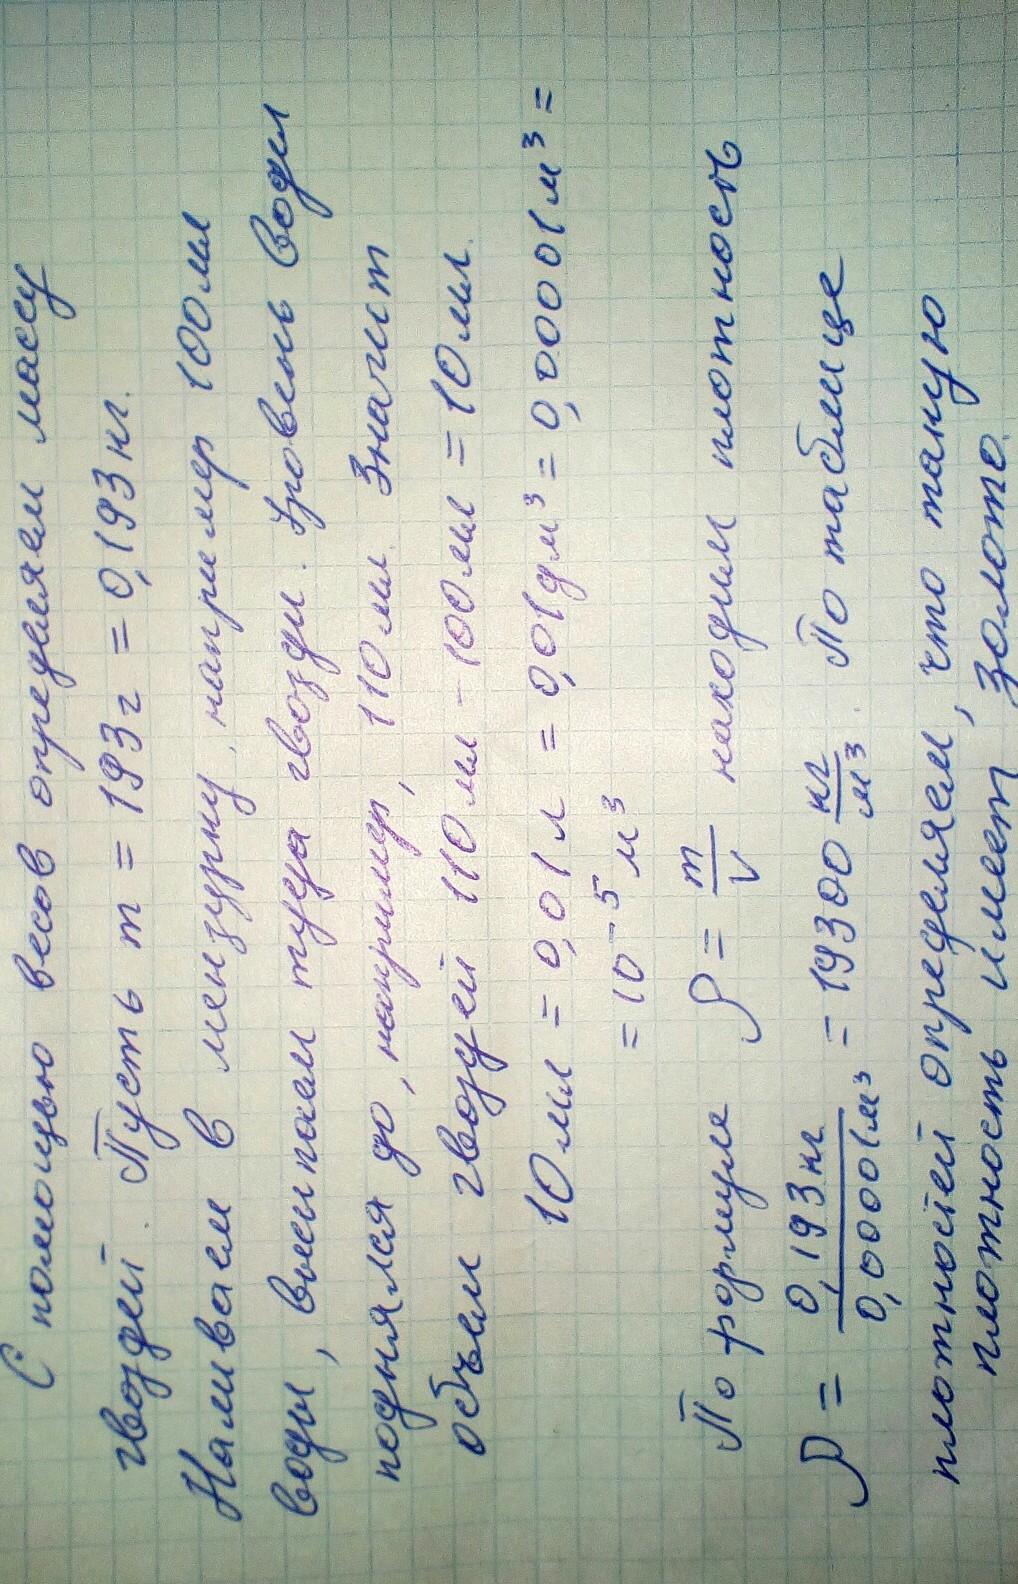 С помощью весов определяем массу
гвоздей. Пусть m = 193 г = 0,193 кг.
Наливаем в мензурку, например 100 мл
воды, высыпаем туда гвозди. Уровень воды
поднялся до, например, 110 мл. Значит
объём гвоздей 110 мл - 100 мл = 10 мл.
10 мл = 0,01 л = 0,01 дм³ = 0,00001 м³ =
= 10⁻⁵ м³
По формуле ρ = m/V находим плотность
ρ = 0,193 кг/0,00001 м³ = 19300 кг/м³. По таблице
плотностей определяем, что такую
плотность имеет золото.